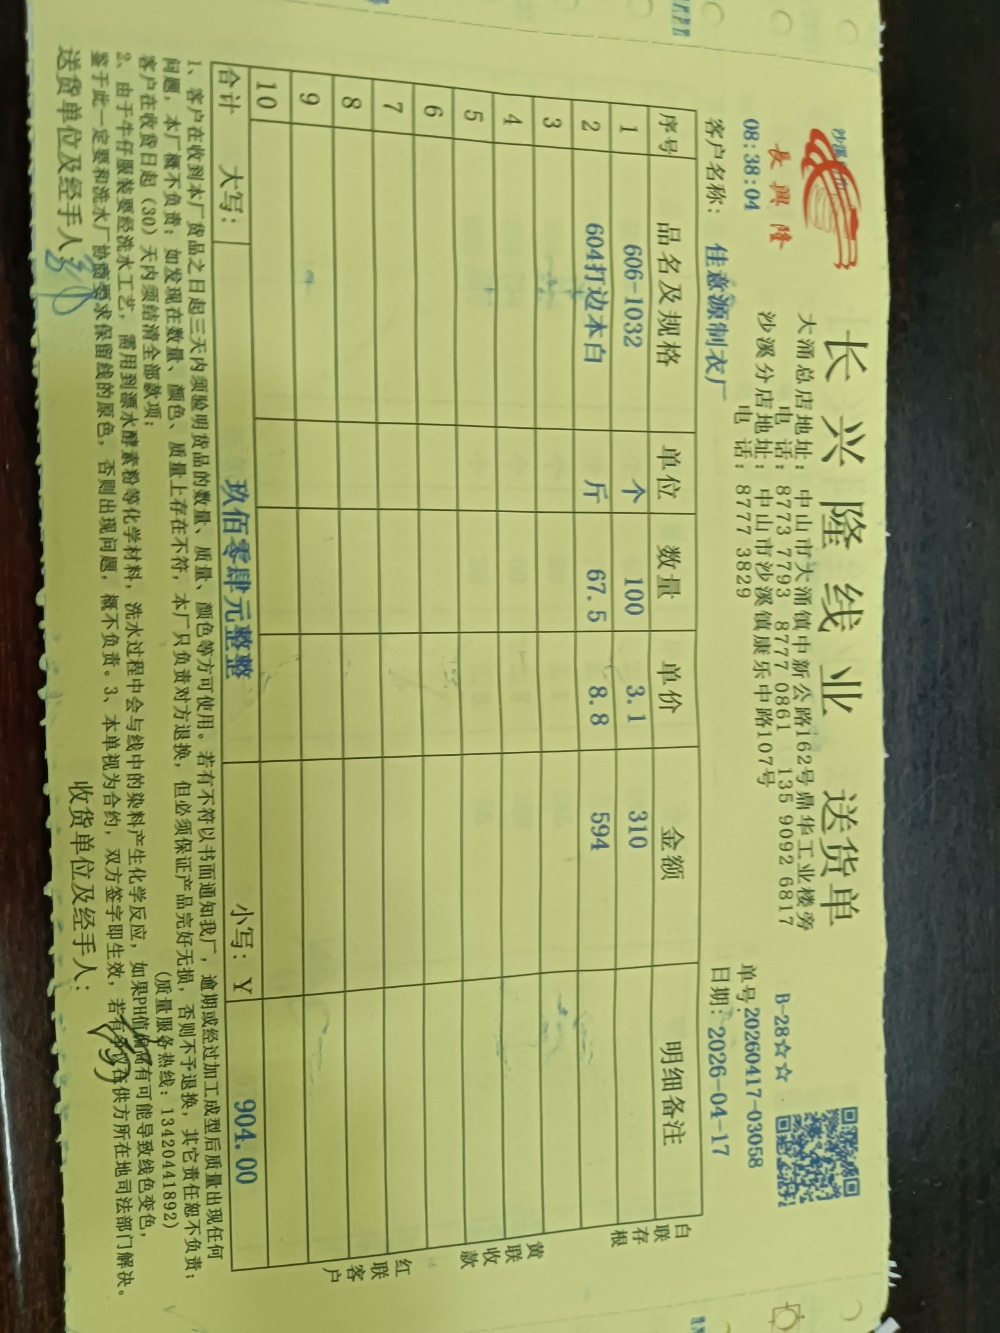 長興隆
长兴隆线业 送货单
大涌总店地址：中山市大涌镇中新公路162号鼎华工业楼旁
电 话：8773 7793 8777 0861 135 9092 6817
沙溪分店地址：中山市沙溪镇康乐中路107号
电 话：8777 3829
B-28☆☆
08:38:04
单号:20260417-03058
客户名称：佳意源制衣厂
日期：2026-04-17
序号 品名及规格 单位 数量 单价 金额 明细备注
1 606-1032 个 100 3.1 310
2 604打边本白 斤 67.5 8.8 594
3
4
5
6
7
8
9
10
合计 大写：玖佰零肆元整整 小写：Y 904.00
白联存根
黄联收款
红联客户
1、客户在收到本厂货品之日起三天内须验明货品的数量、质量、颜色等方可使用。若有不符以书面通知我厂，逾期或经过加工成型后质量出现任何
问题，本厂概不负责；如发现在数量、颜色、质量上存在不符，本厂只负责对方退换，但必须保证产品完好无损，否则不予退换，其它责任恕不负责；
客户在收货日起（30）天内须结清全部款项；
（质量服务热线：13420441892）
2、由于牛仔服装要经洗水工艺，需用到漂水酵素粉等化学材料，洗水过程中会与线中的染料产生化学反应，如果PH值偏高有可能导致线色变色，
鉴于此一定要和洗水厂协商要求保留线的原色，否则出现问题，概不负责。3、本单视为合约，双方签字即生效，若有争议在供方所在地司法部门解决。
送货单位及经手人：
收货单位及经手人：